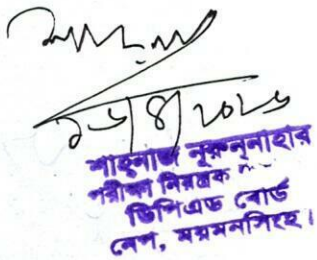 ১৬/৪/২০১৬
শাহনাজ নূরুন্নাহার
পরীক্ষা নিয়ন্ত্রক
ডিপিএড বোর্ড
নেপ, ময়মনসিংহ।